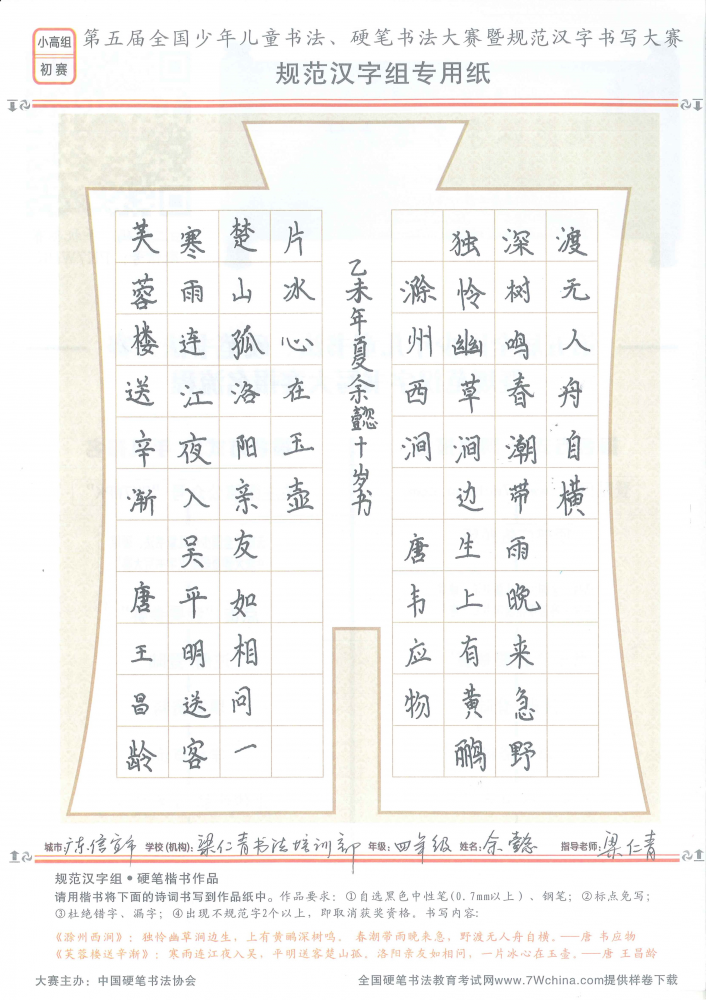 小高组
初赛
第五届全国少年儿童书法、硬笔书法大赛暨规范汉字书写大赛
规范汉字组专用纸
芙蓉楼送辛渐 唐王昌龄
寒雨连江夜入吴平明送客
楚山孤洛阳亲友如相问一
片冰心在玉壶
乙未年夏余懿十岁书
滁州西涧 唐韦应物
独怜幽草涧边生上有黄鹂
深树鸣春潮带雨晚来急野
渡无人舟自横
城市:广东信宜市 学校(机构):梁仁青书法培训部 年级:四年级 姓名:余懿 指导老师:梁仁青
规范汉字组•硬笔楷书作品
请用楷书将下面的诗词书写到作品纸中。作品要求：①自选黑色中性笔(0.7mm以上)、钢笔；②标点免写；
③杜绝错字、漏字；④出现不规范字2个以上，即取消获奖资格。书写内容：
《滁州西涧》：独怜幽草涧边生，上有黄鹂深树鸣。春潮带雨晚来急，野渡无人舟自横。——唐 韦应物
《芙蓉楼送辛渐》：寒雨连江夜入吴，平明送客楚山孤。洛阳亲友如相问，一片冰心在玉壶。——唐 王昌龄
大赛主办：中国硬笔书法协会 全国硬笔书法教育考试网www.7Wchina.com提供样卷下载